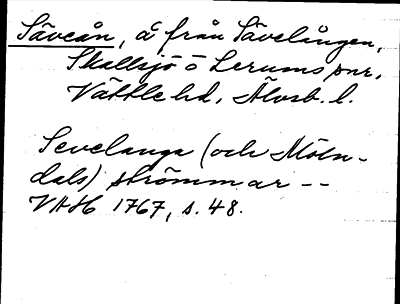 Säveån, å från Sävelången,
Skallsjö o Lerums snr,
Vättle hd, Älvsb. l.
Sevelanga (och Möln-
dals) strömmar --
VHH 1767, s. 48.